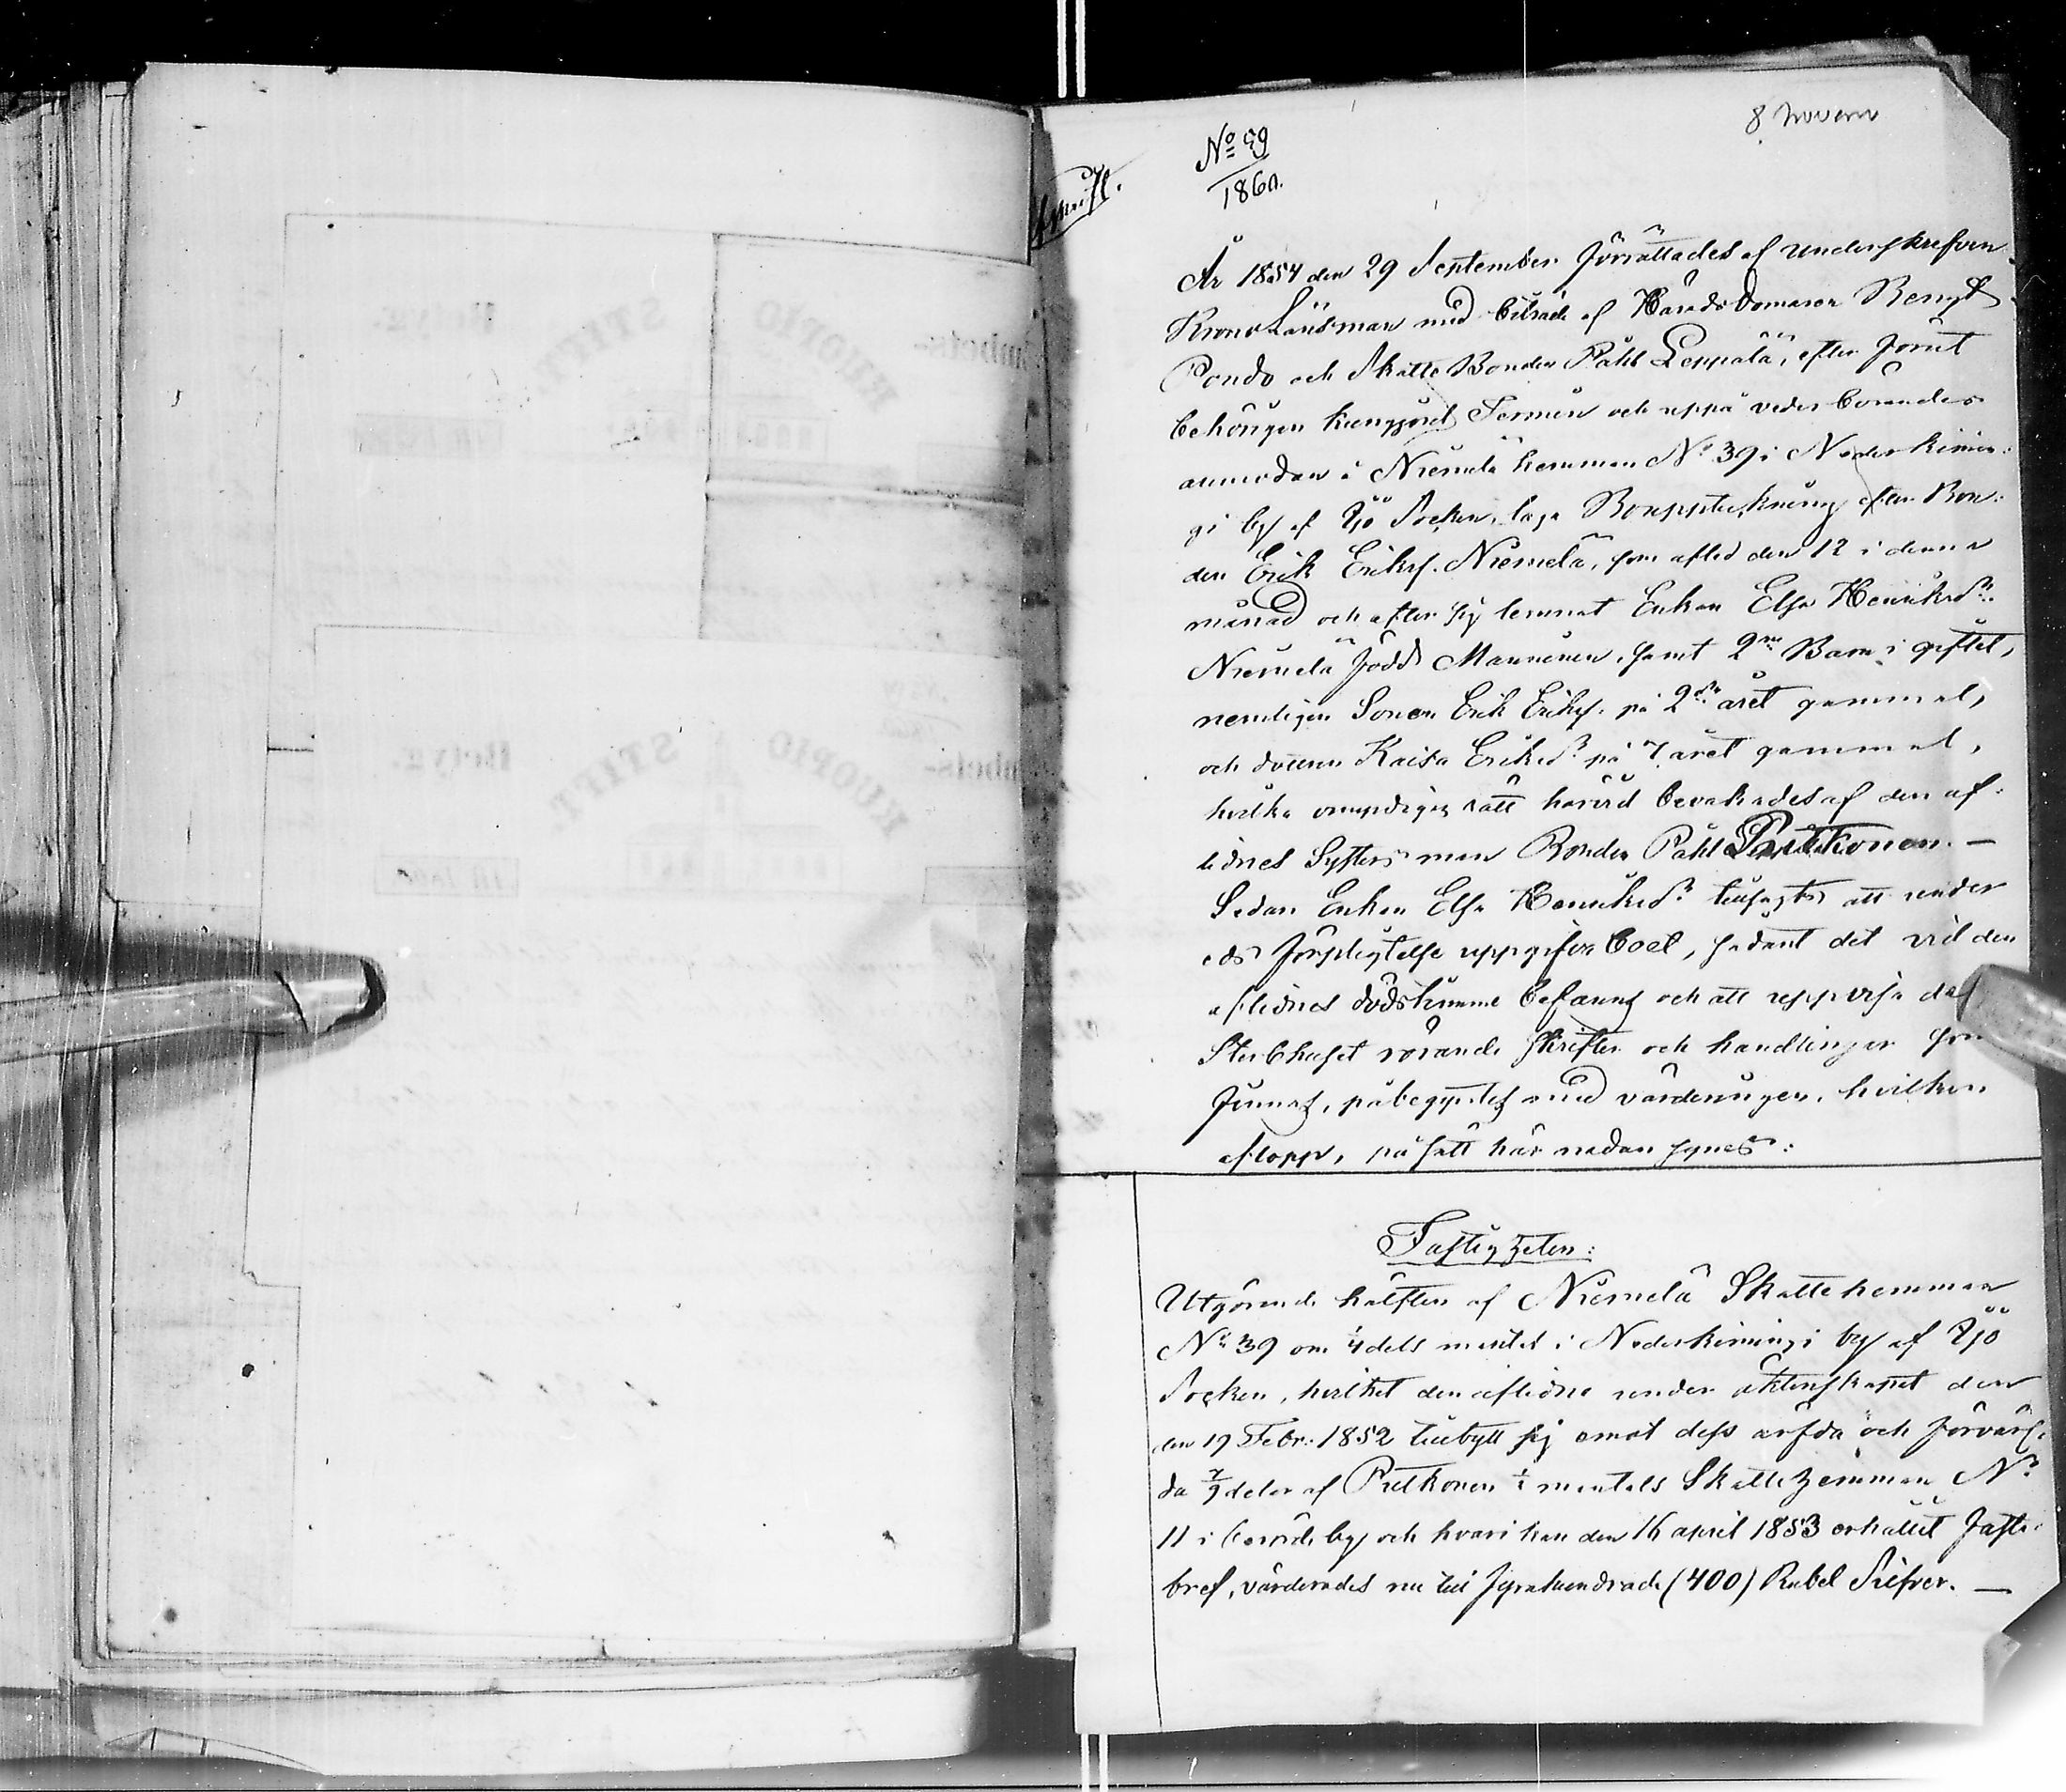 8 novem
No 99
1860.
År 1854 den 29 September förrättades af underskrefven
KronoLänsman med biträde af HäradsDomaren Bengt
Pondo och SkatteBonden Påhl Leppälä, efter förut
behörigen kungjord Termin och uppå vederbörandes
anmodan å Niemelä hemman No 39 i Nederkimin:
gi by af Ijö Socken, laga Bouppteckning efter Bon:
den Erik Eriksf. Niemelä, som afled den 12 i denna
månad och efter sig lemnat Enkan Elsa Henriksdr.
Niemelä född Manninen, samt 2ne Barn i giftet,
nemligen Sonen Erik Eriksf. på 2dra året gammal,
och dottren Kaisa Eriksdr på 7 året gammal,
hvilka omyndiges rätt härvid bevakades af den af:
lidnes Systers man Bonden Påhl Putkonen. —
Sedan Enkan Elsa Henriksdr tillsagts att under
eds förpligtelse uppgifva boet, sådant det vid den
aflidnes dödstimme befanns och att uppvisa de
Sterbhuset rörande skrifter och handlingar som
funnos, påbegyntes med värderingen, hvilken
aflopp, på sätt här nedan synes:
Fastigheten:
Utgörande hälften af Niemelä Skattehemman
No 39 om 1/4 dels mantal i Nederkimingi by af Ijö
Socken, hvilket den aflidne under äktenskapet den
den 19 Febr: 1852 tillbytt sig emot dess ärfda och förvärf:
da 7/9 delar af Putkonen mantals Skattehemman No
11 i berörde by och hvari han den 16 april 1853 erhållit faste:
bref, värderades nu till fyrahundrade (400) Rubel Silfver. —